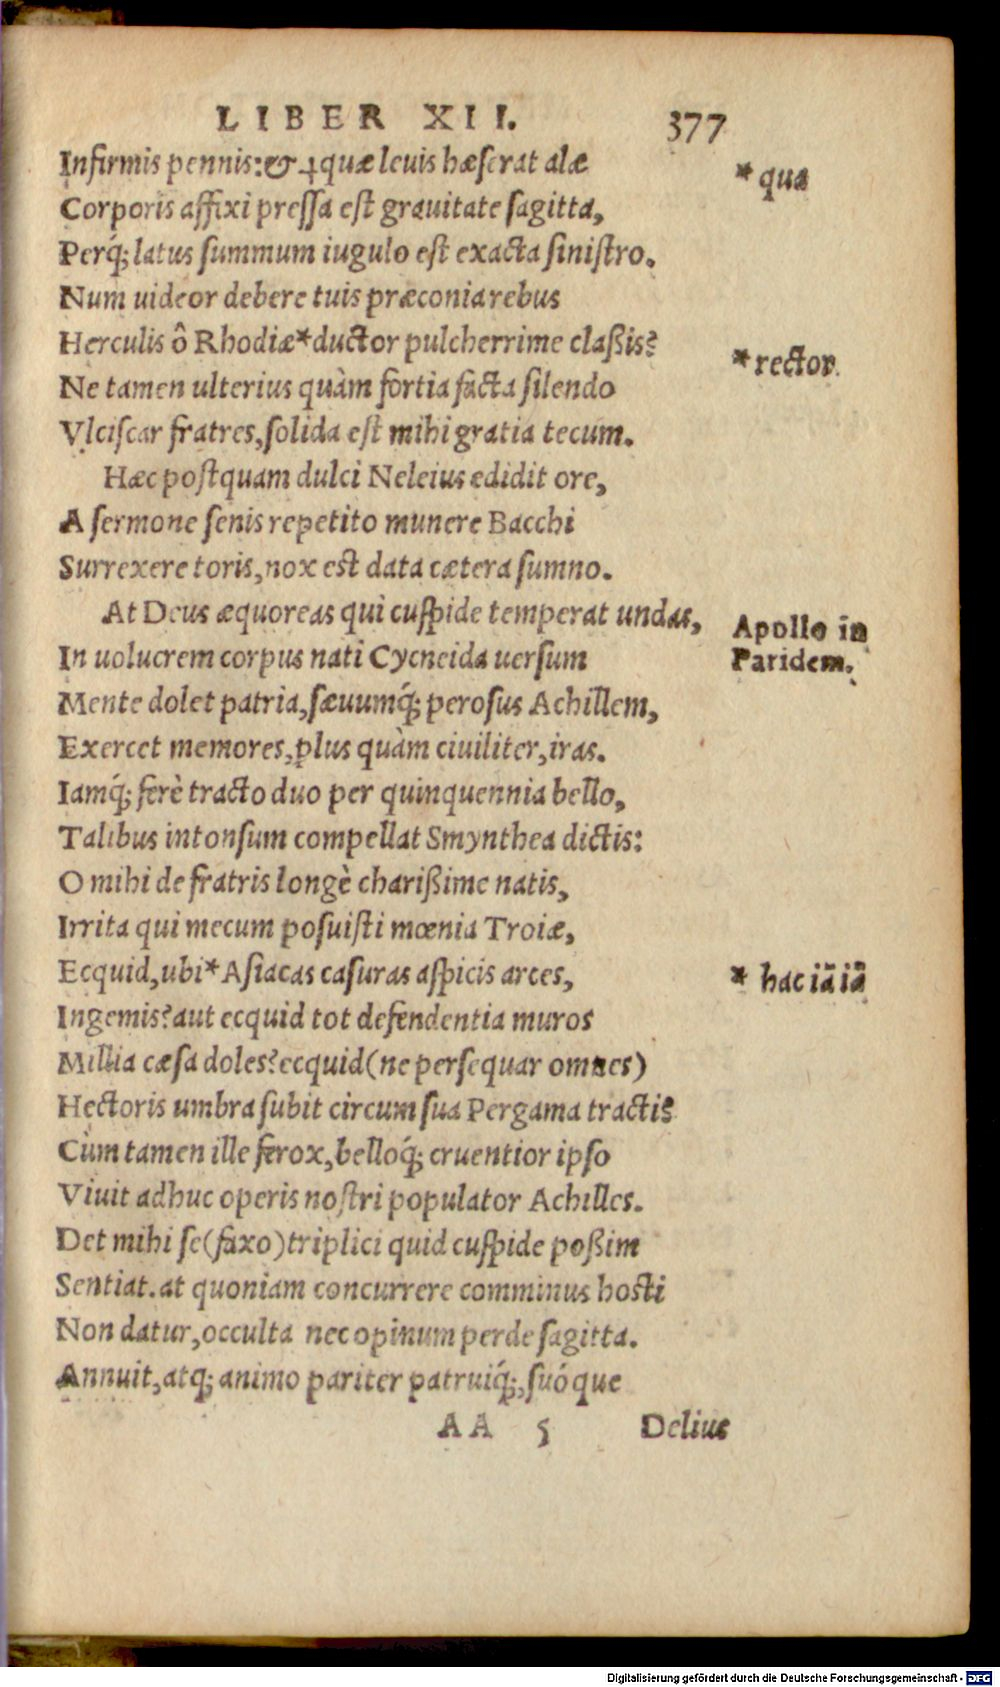 LIBER XII. 377
Infirmis pennis: & quæ leuis hæserat alæ
*qua
Corporis affixi pressa est grauitate sagitta,
Perq́; latus summum iugulo est exacta sinistro.
Num uideor debere tuis præconia rebus
Herculis ô Rhodiæ*ductor pulcherrime claßis?
*rector.
Ne tamen ulterius quàm fortia facta silendo
Vlciscar fratres, solida est mihi gratia tecum.
Hæc postquam dulci Neleius edidit ore,
A sermone senis repetito munere Bacchi
Surrexere toris, nox est data cætera sumno.
At Deus æquoreas qui cuspide temperat undas,
Apollo in
Paridem.
In uolucrem corpus nati Cycneida uersum
Mente dolet patria, sæuumq́; perosus Achillem,
Exercet memores, plus quàm ciuiliter, iras.
Iamq́; ferè tracto duo per quinquennia bello,
Talibus intonsum compellat Smynthea dictis:
O mihi de fratris longè charißime natis,
Irrita qui mecum posuisti mœnia Troiæ,
Ecquid, ubi*Asiacas casuras aspicis arces,
* hac iā iā
Ingemis? aut ecquid tot defendentia muros
Millia cæsa doles? ecquid (ne persequar omnes)
Hectoris umbra subit circum sua Pergama tracti?
Cùm tamen ille ferox, belloq́; cruentior ipso
Viuit adhuc operis nostri populator Achilles.
Det mihi se (faxo) triplici quid cuspide poßim
Sentiat. at quoniam concurrere comminus hosti
Non datur, occulta necopinum perde sagitta.
Annuit, atq; animo pariter patruiq́;, suóque
AA 5 Delius
Digitalisierung gefördert durch die Deutsche Forschungsgemeinschaft - DFG